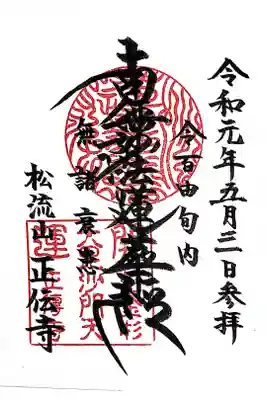 令和元年五月三日参拝
令百由旬内
南無妙法蓮華経
無諸衰患
松流山 正伝寺